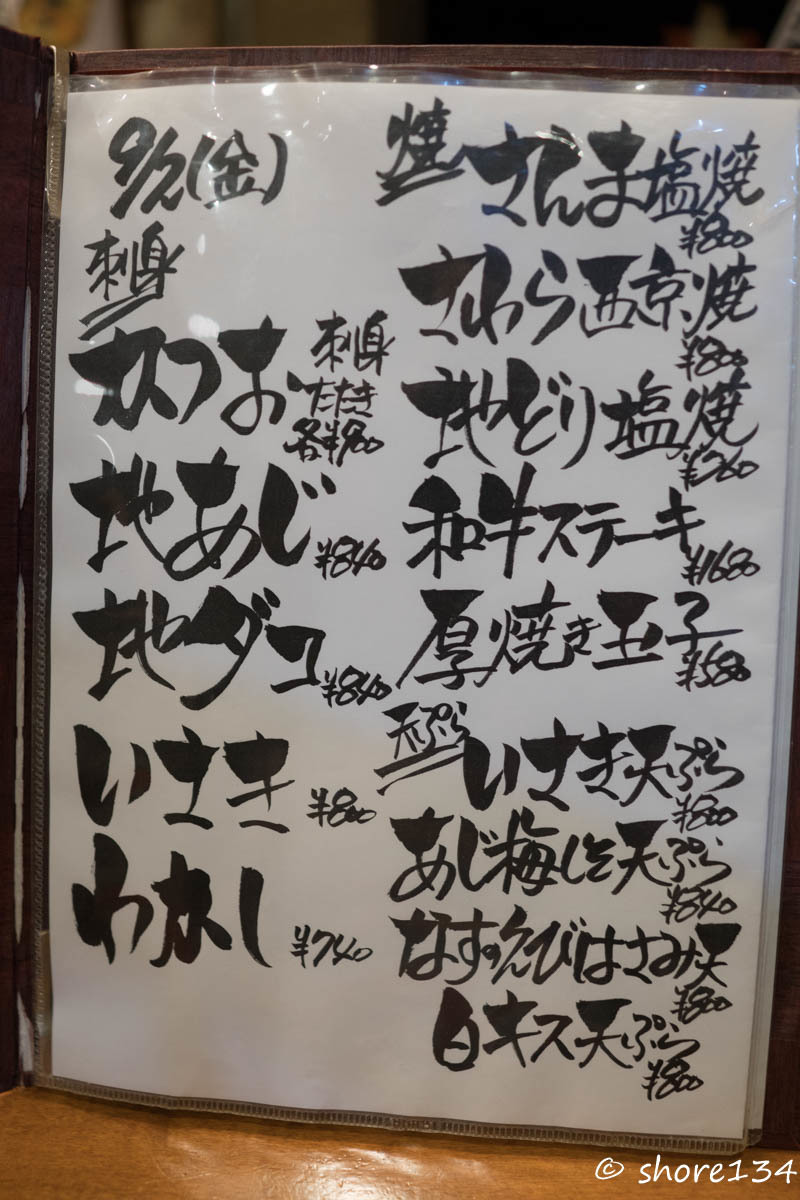 9/2(金)
刺身
かつお 刺身 たたき 各半¥900
地あじ ¥840
地ダコ ¥840
いさき ¥800
わかし ¥740
焼
さんま塩焼 ¥800
さわら西京焼 ¥800
地どり塩焼 ¥760
和牛ステーキ ¥1680
厚焼き玉子 ¥580
天ぷら
いさき天ぷら ¥800
あじ梅しそ天ぷら ¥840
なすのえびはさみ天 ¥800
白キス天ぷら ¥800
© shore134